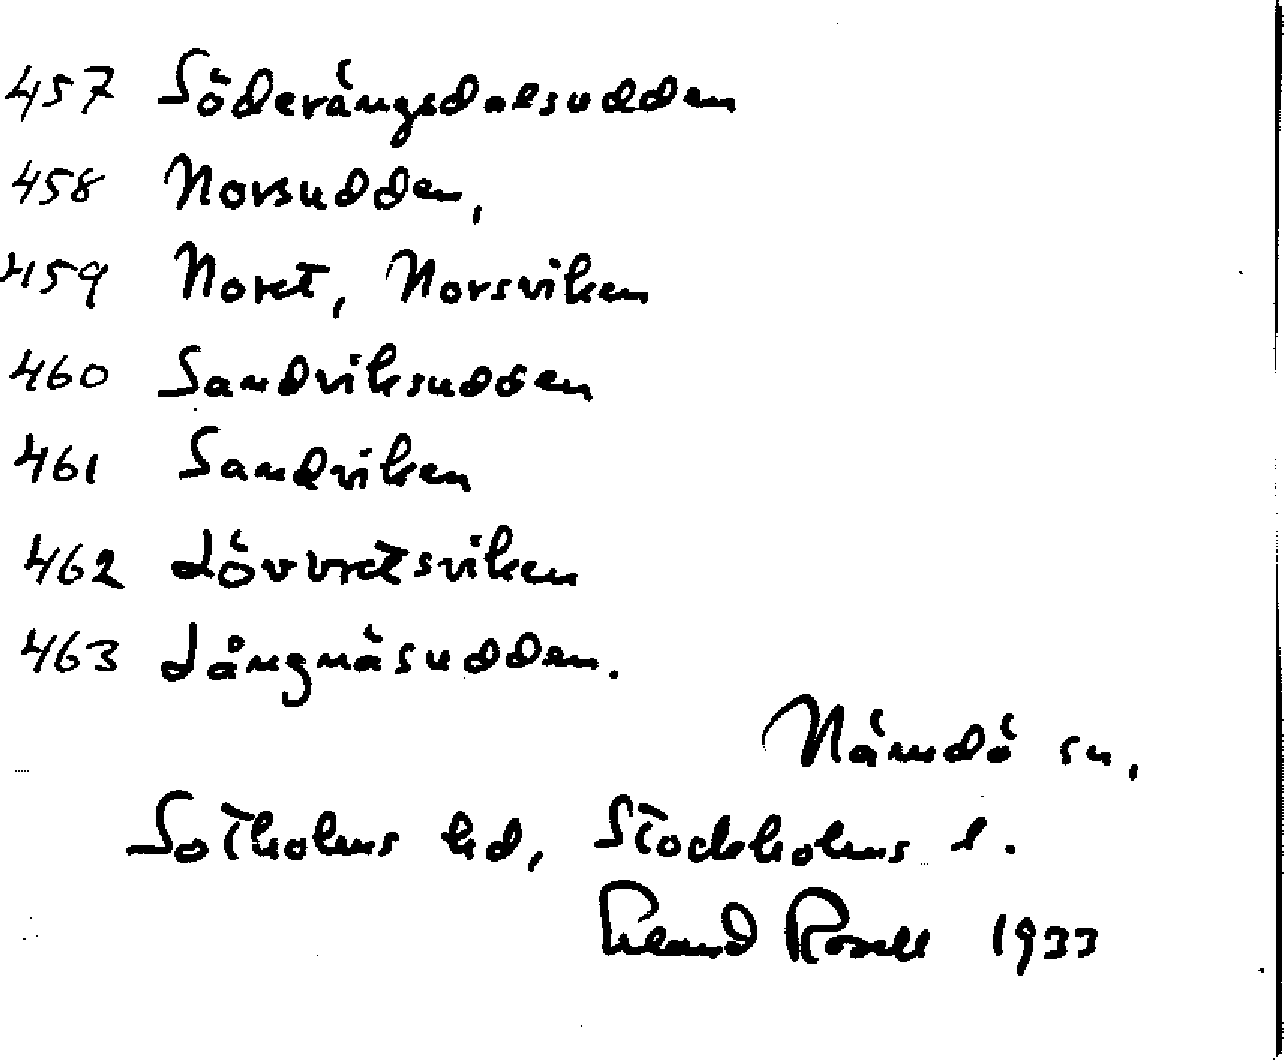 457 Söderängsdalsudden
458 Norsudden,
459 Noret, Norsviken
460 Sandviksudden
461 Sandviken
462 Lövvretsviken
463 Långnäsudden.
Nämdö sn,
Sotholms hd, Stockholms l.
Rosell 1933